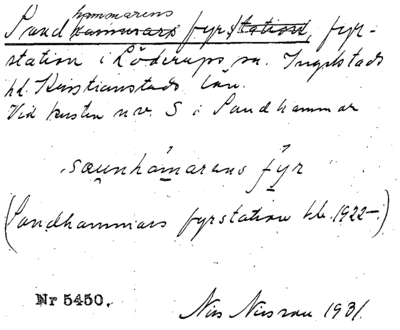 hammarens
Sandhammars fyrstation, fyr-
station i Löderups sn. Ingelstads
hd. Kristianstads län.
Vid kusten n.v. S i Sandhammar
sæunhámarens fýr
(Sandhammars fyrstation kb. 1922–.)
Nr 5450. Nils Nilsson 1931.